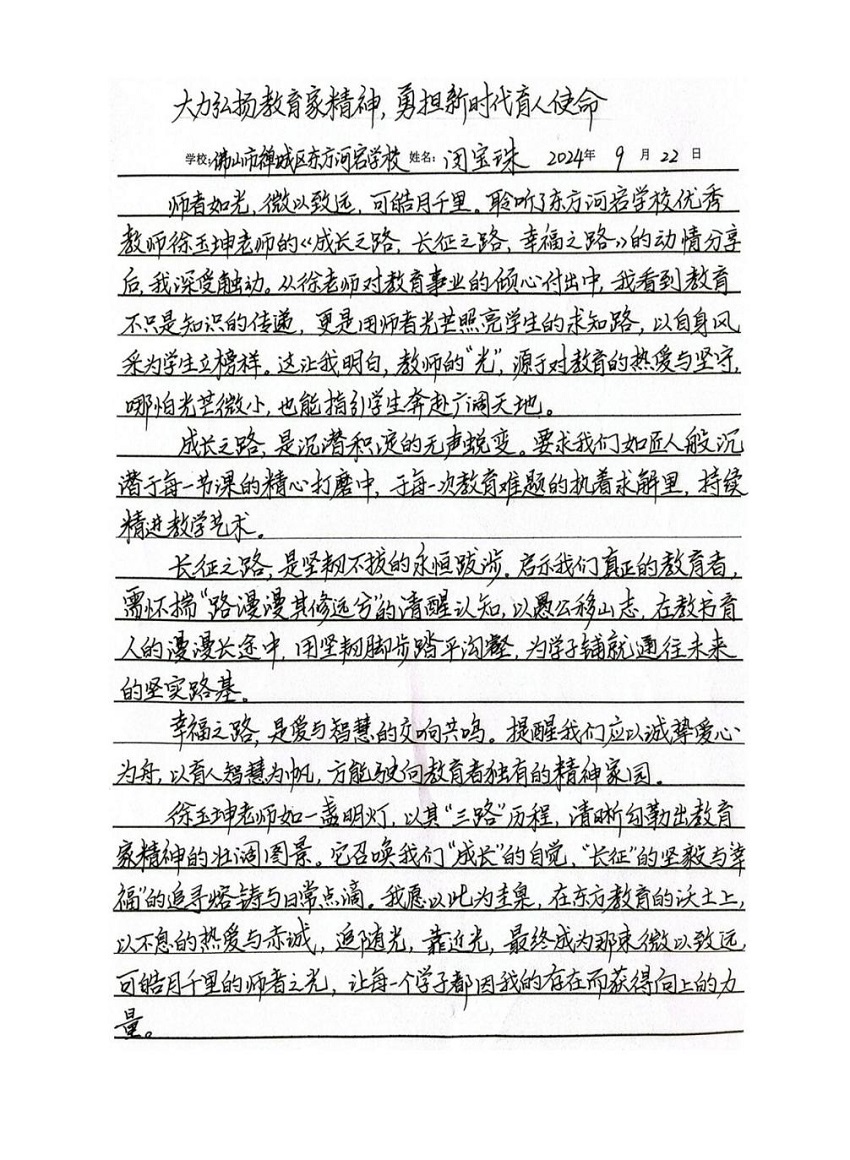 大力弘扬教育家精神,勇担新时代育人使命
学校:佛山市禅城区东方河宕学校 姓名:闭宝珠 2024年 9 月 22 日
师者如光,微以致远,可皓月千里。聆听了东方河宕学校优秀
教师徐玉坤老师的《成长之路,长征之路,幸福之路》的动情分享
后,我深受触动。从徐老师对教育事业的倾心付出中,我看到教育
不只是知识的传递,更是用师者光芒照亮学生的求知路,以自身风
采为学生立榜样。这让我明白,教师的"光",源于对教育的热爱与坚守,
哪怕光芒微小,也能指引学生奔赴广阔天地。
成长之路,是沉潜积淀的无声蜕变。要求我们如匠人般沉
潜于每一节课的精心打磨中,于每一次教育难题的执着求解里,持续
精进教学艺术。
长征之路,是坚韧不拔的永恒跋涉。启示我们真正的教育者,
需怀揣"路漫漫其修远兮"的清醒认知,以愚公移山志,在教书育
人的漫漫长途中,用坚韧脚步踏平沟壑,为学子铺就通往未来
的坚实路基。
幸福之路,是爱与智慧的交响共鸣。提醒我们应以诚挚爱心
为舟,以育人智慧为帆,方能驶向教育者独有的精神家园。
徐玉坤老师如一盏明灯,以其"三路"历程,清晰勾勒出教育
家精神的壮阔图景。它召唤我们"成长"的自觉、"长征"的坚毅与"幸
福"的追寻熔铸与日常点滴。我愿以此为圭臬,在东方教育的沃土上,
以不息的热爱与赤诚,追随光,靠近光,最终成为那束微以致远,
可皓月千里的师者之光,让每一个学子都因我的存在而获得向上的力
量。